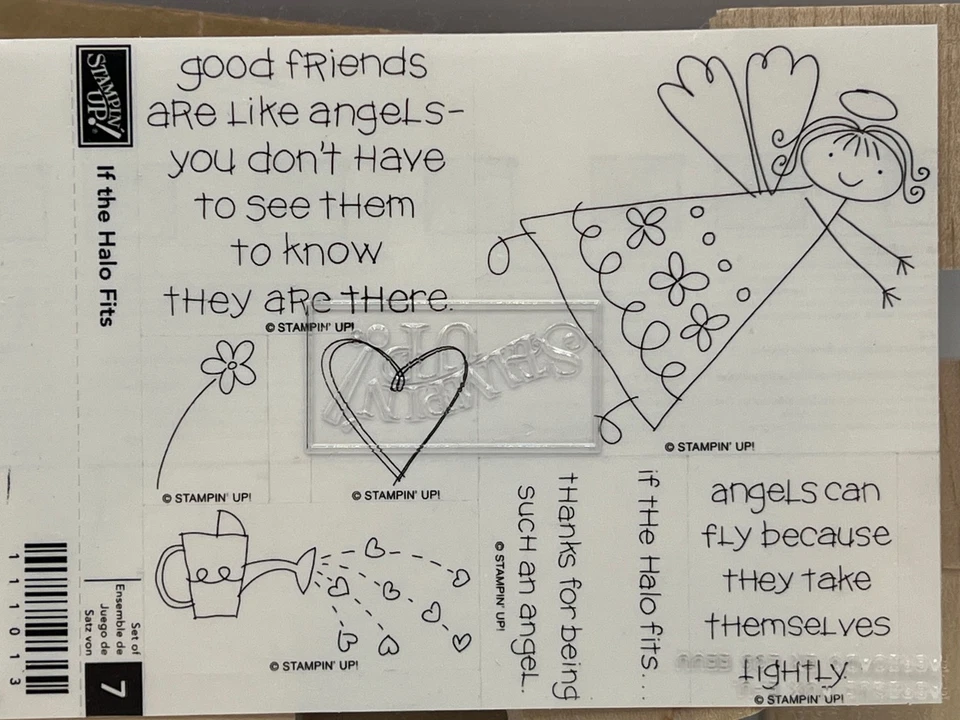 STAMPIN' UP!
If the Halo Fits
good friends
are like angels-
you don't have
to see them
to know
they are there.
© STAMPIN' UP!
© STAMPIN' UP!
© STAMPIN' UP!
© STAMPIN' UP!
STAMPIN' UP!
© STAMPIN' UP!
thanks for being
such an angel.
© STAMPIN' UP!
if the Halo fits...
angels can
fly because
they take
themselves
lightly.
© STAMPIN' UP!
Set of
Ensemble de
Juego de
Satz von
7
111013